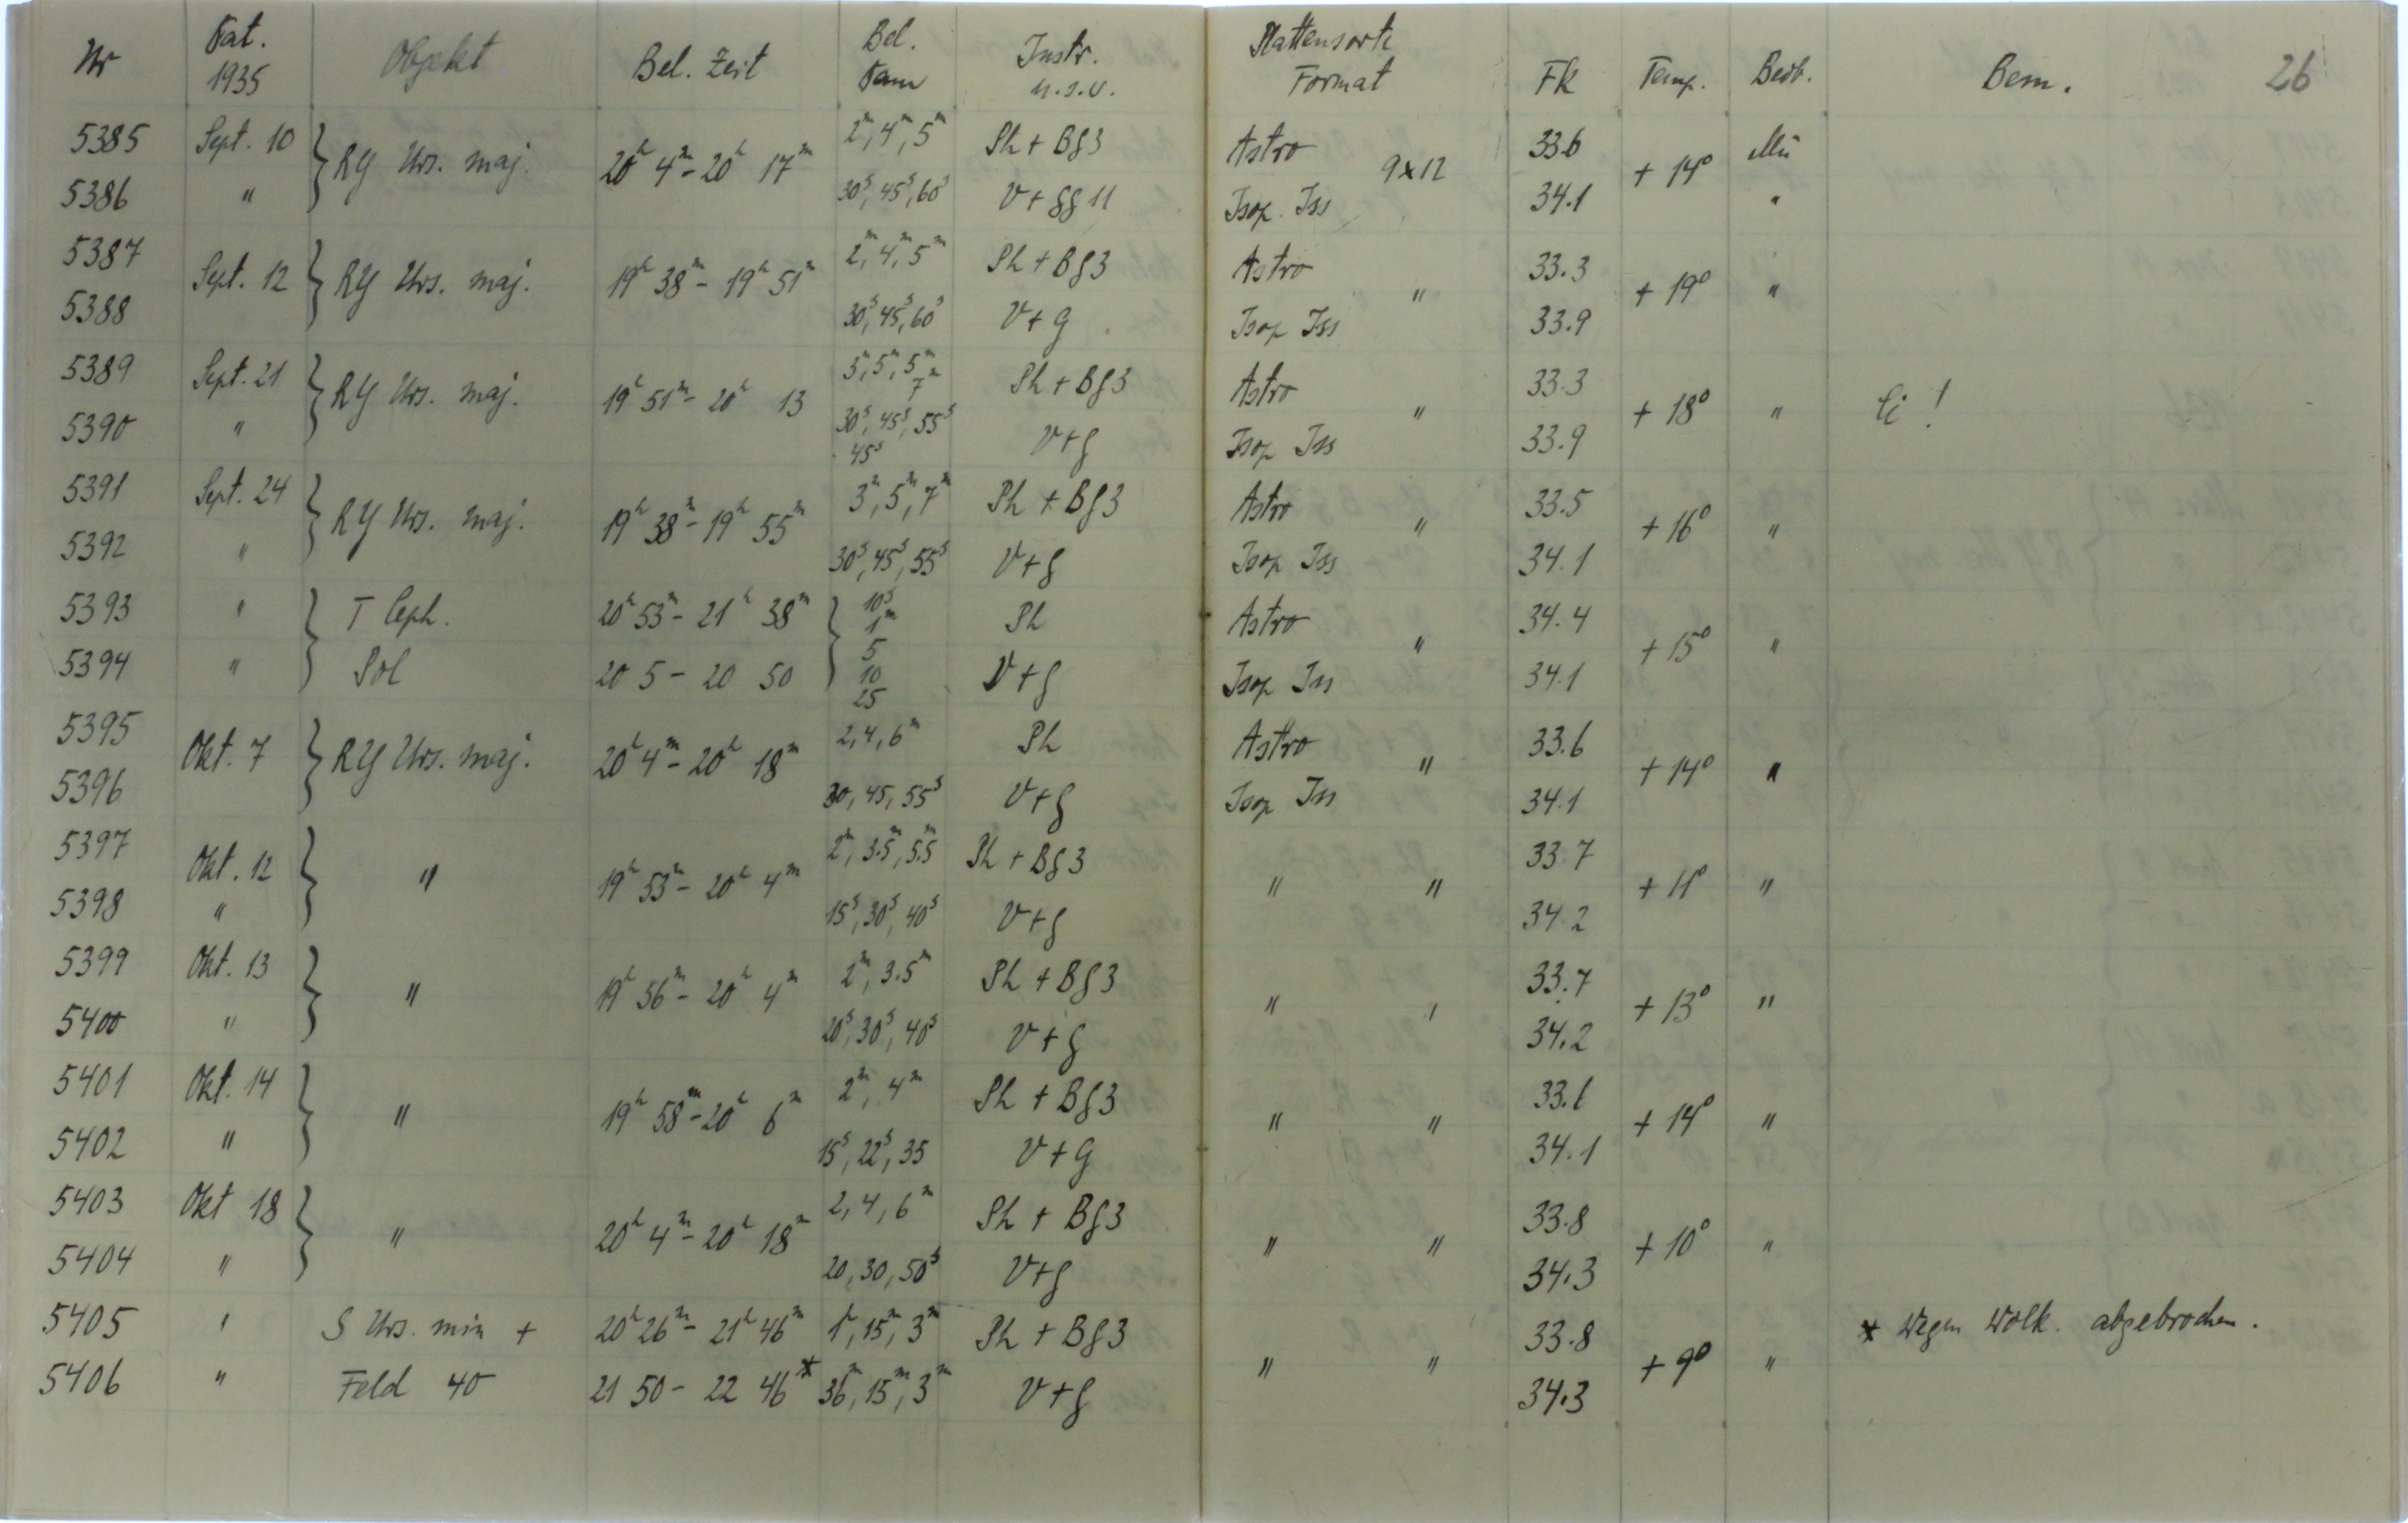 Nr Dat. 1935 Objekt Bel. Zeit Bel. Dau Instr. u.s.v. Plattensorte Format Fk Temp. Beob. Bem. 26
5385 Sept. 10 } RY Urs. maj. 20h 4m - 20h 17m 2m, 4m, 5m Ph + Bg3 Astro 9x12 33.6 + 14° Mü
5386 " 30s, 45s, 60s V + gg 11 Isop. Iss 34.1 "
5387 Sept. 12 } RY Urs. maj. 19h 38m - 19h 51m 2m, 4m, 5m Ph + Bg3 Astro " 33.3 + 19° "
5388 30s, 45s, 60s V + G Isop Iss 33.9
5389 Sept. 21 } RY Urs. maj. 19h 51m - 20h 13 3m, 5m, 5m 7m Ph + Bg3 Astro " 33.3 + 18° " !
5390 " 30s, 45s, 55s 45s V + g Isop Iss 33.9
5391 Sept. 24 } RY Urs. maj. 19h 38m - 19h 55m 3m, 5m, 7m Ph + Bg3 Astro " 33.5 + 16° "
5392 " 30s, 45s, 55s V + g Isop Iss 34.1
5393 " } T Ceph. 20h 53m - 21h 38m } 10s 1m Ph Astro " 34.4 + 15° "
5394 " Pol 20 5 - 20 50 5 10 25 V + g Isop Iss 34.1
5395 Okt. 7 } RY Urs. maj. 20h 4m - 20h 18m 2, 4, 6m Ph Astro " 33.6 + 14° "
5396 30, 45, 55s V + g Isop Iss 34.1
5397 Okt. 12 } " 19h 53m - 20h 4m 2m, 3.5m, 5.5m Ph + Bg3 " " 33.7 + 11° "
5398 " 15s, 30s, 40s V + g 34.2
5399 Okt. 13 } " 19h 56m - 20h 4m 2m, 3.5m Ph + Bg3 " " 33.7 + 13° "
5400 " 20s, 30s, 40s V + g 34.2
5401 Okt. 14 } " 19h 58m - 20h 6m 2m, 4m Ph + Bg3 " " 33.6 + 14° "
5402 " 15s, 22s, 35 V + G 34.1
5403 Okt 18 } " 20h 4m - 20h 18m 2, 4, 6m Ph + Bg3 " " 33.8 + 10° "
5404 " 20, 30, 50s V + g 34.3
5405 " S Urs. min + 20h 26m - 21h 46m 1h, 15m, 3m Ph + Bg3 " " 33.8 + 9° " * wegen Wolk. abgebrochen.
5406 " Feld 40 21 50 - 22 46* 36m, 15m, 3m V + g 34.3